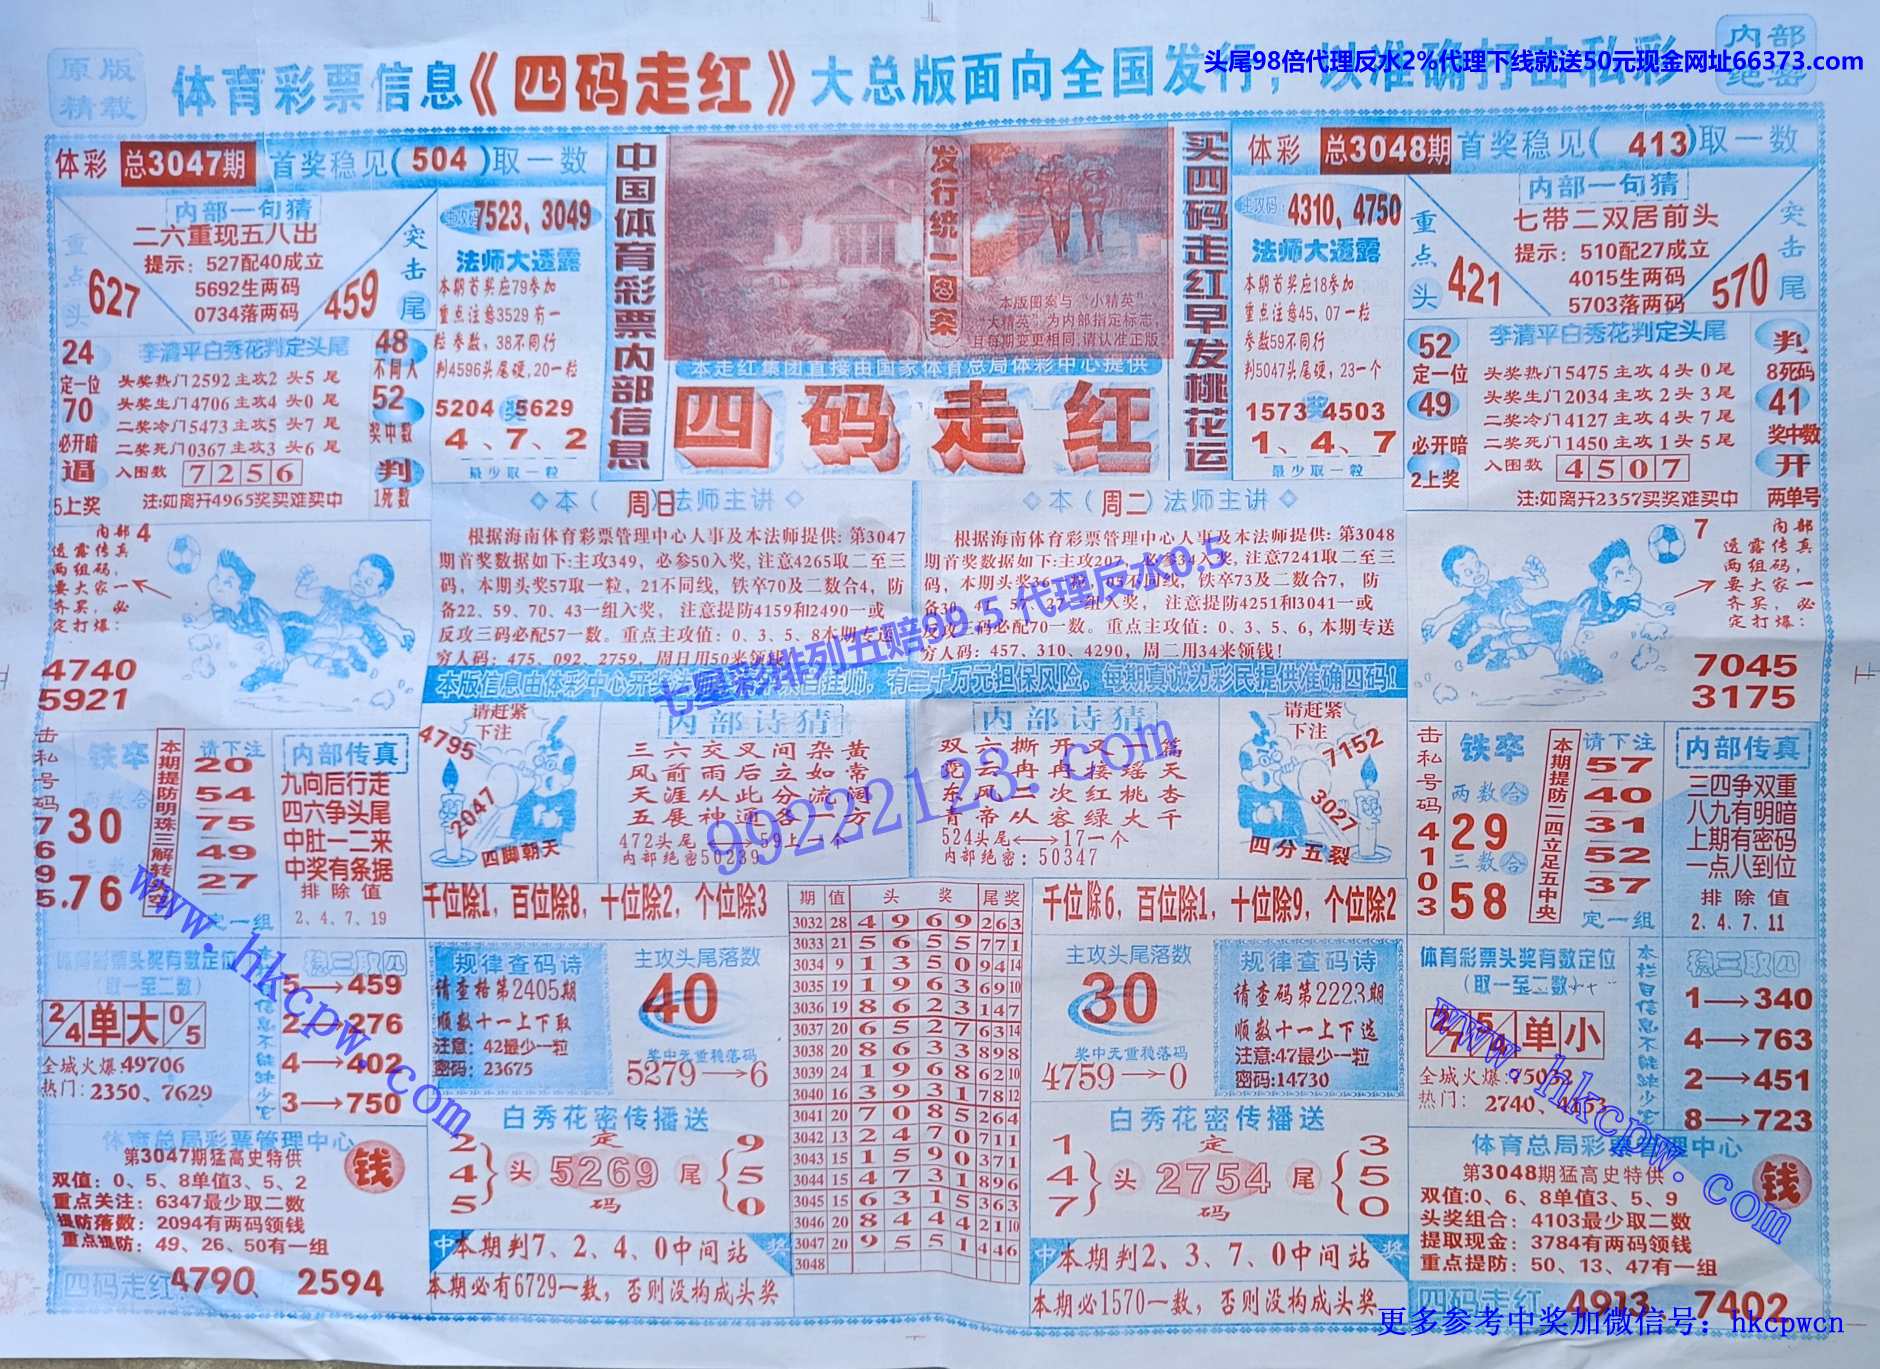 原版
精载
体育彩票信息《四码走红》大总版面向全国发行，以准确打击私彩
内部
绝密
头尾98倍代理反水2%代理下线就送50元现金网址66373.com
体彩 总3047期 首奖稳见(504)取一数
内部一句猜
二六重现五八出
提示：527配40成立
5692生两码
0734落两码
重点头
627
突击尾
459
主攻码:7523、3049
法师大透露
本期首奖应79参加
重点注意3529有一
粒参数，38不同行
判4596头尾硬,20一粒
5204奖5629
4、7、2
最少取一粒
24
定一位
70
必开暗
逼
5上奖
李清平白秀花判定头尾
头奖热门2592主攻2头5尾
头奖生门4706主攻4头0尾
二奖冷门5473主攻5头7尾
二奖死门0367主攻3头6尾
入围数 7256
注:如离开4965奖买难买中
48
不同人
52
奖中数
判
1死数
中国体育彩票内部信息
发行统一图案
本版图案与“小精英”、
“大精英”为内部指定标志，
且每期变更相同,请认准正版
本走红集团直接由国家体育总局体彩中心提供
四码走红
买四码走红早发桃花运
体彩 总3048期 首奖稳见(413)取一数
主攻码:4310、4750
法师大透露
本期首奖应18参加
重点注意45、07一粒
参数59不同行
判5047头尾硬，23一个
1573奖4503
1、4、7
最少取一粒
内部一句猜
七带二双居前头
提示：510配27成立
4015生两码
5703落两码
重点头
421
突击尾
570
52
定一位
49
必开暗
2上奖
李清平白秀花判定头尾
头奖热门5475主攻4头0尾
头奖生门2034主攻2头3尾
二奖冷门4127主攻4头7尾
二奖死门1450主攻1头5尾
入围数 4507
注:如离开2357买奖难买中
判
8死码
41
奖中数
开
两单号
内部4
透露传真
两组码，
要大家一
齐买，必
定打爆：
4740
5921
本(周日)法师主讲
根据海南体育彩票管理中心人事及本法师提供:第3047
期首奖数据如下:主攻349，必参50入奖,注意4265取二至三
码，本期头奖57取一粒，21不同线，铁卒70及二数合4，防
备22、59、70、43一组入奖， 注意提防4159和2490一或
反攻三码必配57一数。重点主攻值：0、3、5、8本期专送
穷人码：475、092、2759，周日用50来领钱
本(周二)法师主讲
根据海南体育彩票管理中心人事及本法师提供:第3048
期首奖数据如下:主攻207，必参34入奖,注意7241取二至三
码，本期头奖36一粒，05不同线，铁卒73及二数合7， 防
备30、41、57、37一组入奖， 注意提防4251和3041一或
反攻三码必配70一数。重点主攻值：0、3、5、6,本期专送
穷人码：457、310、4290，周二用34来领钱!
7 内部
透露传真
两组码，
要大家一
齐买，必
定打爆：
7045
3175
七星彩排列五赔99.5代理反水0.5
99222123.com
击私号码7695.
铁卒
两数合
30
三数合
76
本期提防明珠三解转头空
请下注
20
54
75
49
27
定一组
内部传真
九向后行走
四六争头尾
中肚一二来
中奖有条据
排除值
2、4、7、19
请赶紧
下注
4795
2047
四脚朝天
内部诗猜
三六交叉间杂黄
风前雨后立如常
天涯从此分流阔
五展神通各一方
472头尾⟷59上一个
内部绝密50239
内部诗猜
双六撕开又一篇
霓云冉冉接瑶天
东风一次红桃杏
青帝从客绿大千
524头尾⟷17一个
内部绝密：50347
请赶紧
下注
7152
3027
四分五裂
击私号码4103
铁卒
两数合
29
三数合
58
本期提防二四立足五中央
请下注
57
40
31
52
37
定一组
内部传真
三四争双重
八九有明暗
上期有密码
一点八到位
排除值
2、4、7、11
千位除1，百位除8，十位除2，个位除3
千位除6，百位除1，十位除9，个位除2
期 值 头奖 尾奖
3032 28 4969 263
3033 21 5655 771
3034 9 1350 94 14
3035 19 1963 69 10
3036 19 8623 147
3037 20 6527 63 14
3038 20 8633 898
3039 24 1968 62 10
3040 16 3931 78 12
3041 20 7085 264
3042 13 2470 711
3043 15 1590 371
3044 15 4731 896
3045 15 6315 363
3046 20 8444 21 10
3047 20 9551 446
3048
体育彩票头奖有数定位
(取一至二数)
2/4 单 大 0/5
全城火爆:49706
热门：2350、7629
稳三取四
5→459
2→276
4→402
3→750
规律查码诗
请查格第2405期
顺数十一上下取
注意：42最少一粒
密码：23675
主攻头尾落数
40
奖中无重稳落码
5279→6
主攻头尾落数
30
奖中无重稳落码
4759→0
规律查码诗
请查码第2223期
顺数十一上下选
注意:47最少一粒
密码:14730
体育彩票头奖有数定位
(取一至二数)
单 小
全城火爆:
热门： 2740、
本栏目信息不能缺少它
稳三取四
1→340
4→763
2→451
8→723
体育总局彩票管理中心
第3047期猛高史特供
钱
双值：0、5、8单值3、5、2
重点关注：6347最少取二数
提防落数：2094有两码领钱
重点提防：49、26、50有一组
四码走红4790、2594
白秀花密传播送
2 4 5 头 定 5269 码 尾 9 5 0
中 本期判7、2、4、0中间站
本期必有6729一数，否则没构成头奖
白秀花密传播送
1 4 7 头 定 2754 码 尾 3 5 0
中 本期判2、3、7、0中间站 奖
本期必1570一数，否则没构成头奖
体育总局彩票管理中心
第3048期猛高史特供
钱
双值:0、6、8单值3、5、9
头奖组合：4103最少取二数
提取现金：3784有两码领钱
重点提防：50、13、47有一组
四码走红 4913、7402
www.hkcpw.com
www.hkcpw.com
更多参考中奖加微信号：hkcpwcn